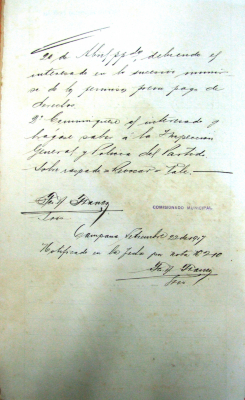 20, de Abril ppdo, debiendo el
interesado en lo sucesivo munir-
se de los permisos previo pago de
derechos.
2º Comuníquese al interesado y
hágase saber a la Inspección
General y Policía del Partido
Sobre raspado = Vale.—
COMISIONADO MUNICIPAL
Campana Setiembre 22 de 1917
Notificado en la fecha por nota Nº 210